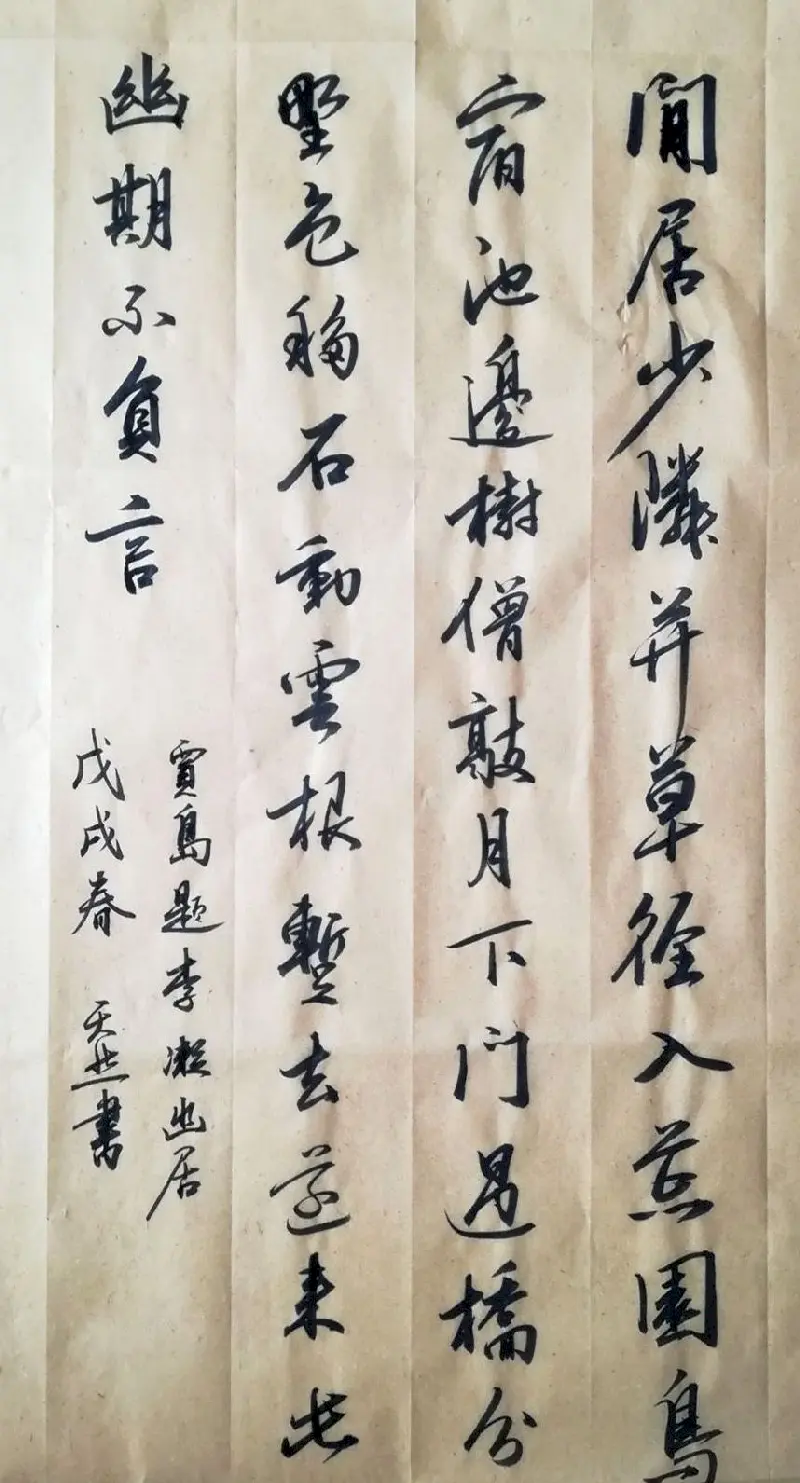 閒居少隣並草徑入荒園鳥
宿池邊樹僧敲月下門過橋分
野色移石動雲根暫去還來此
幽期不負言
賈島題李凝幽居
戊戌春 天然書